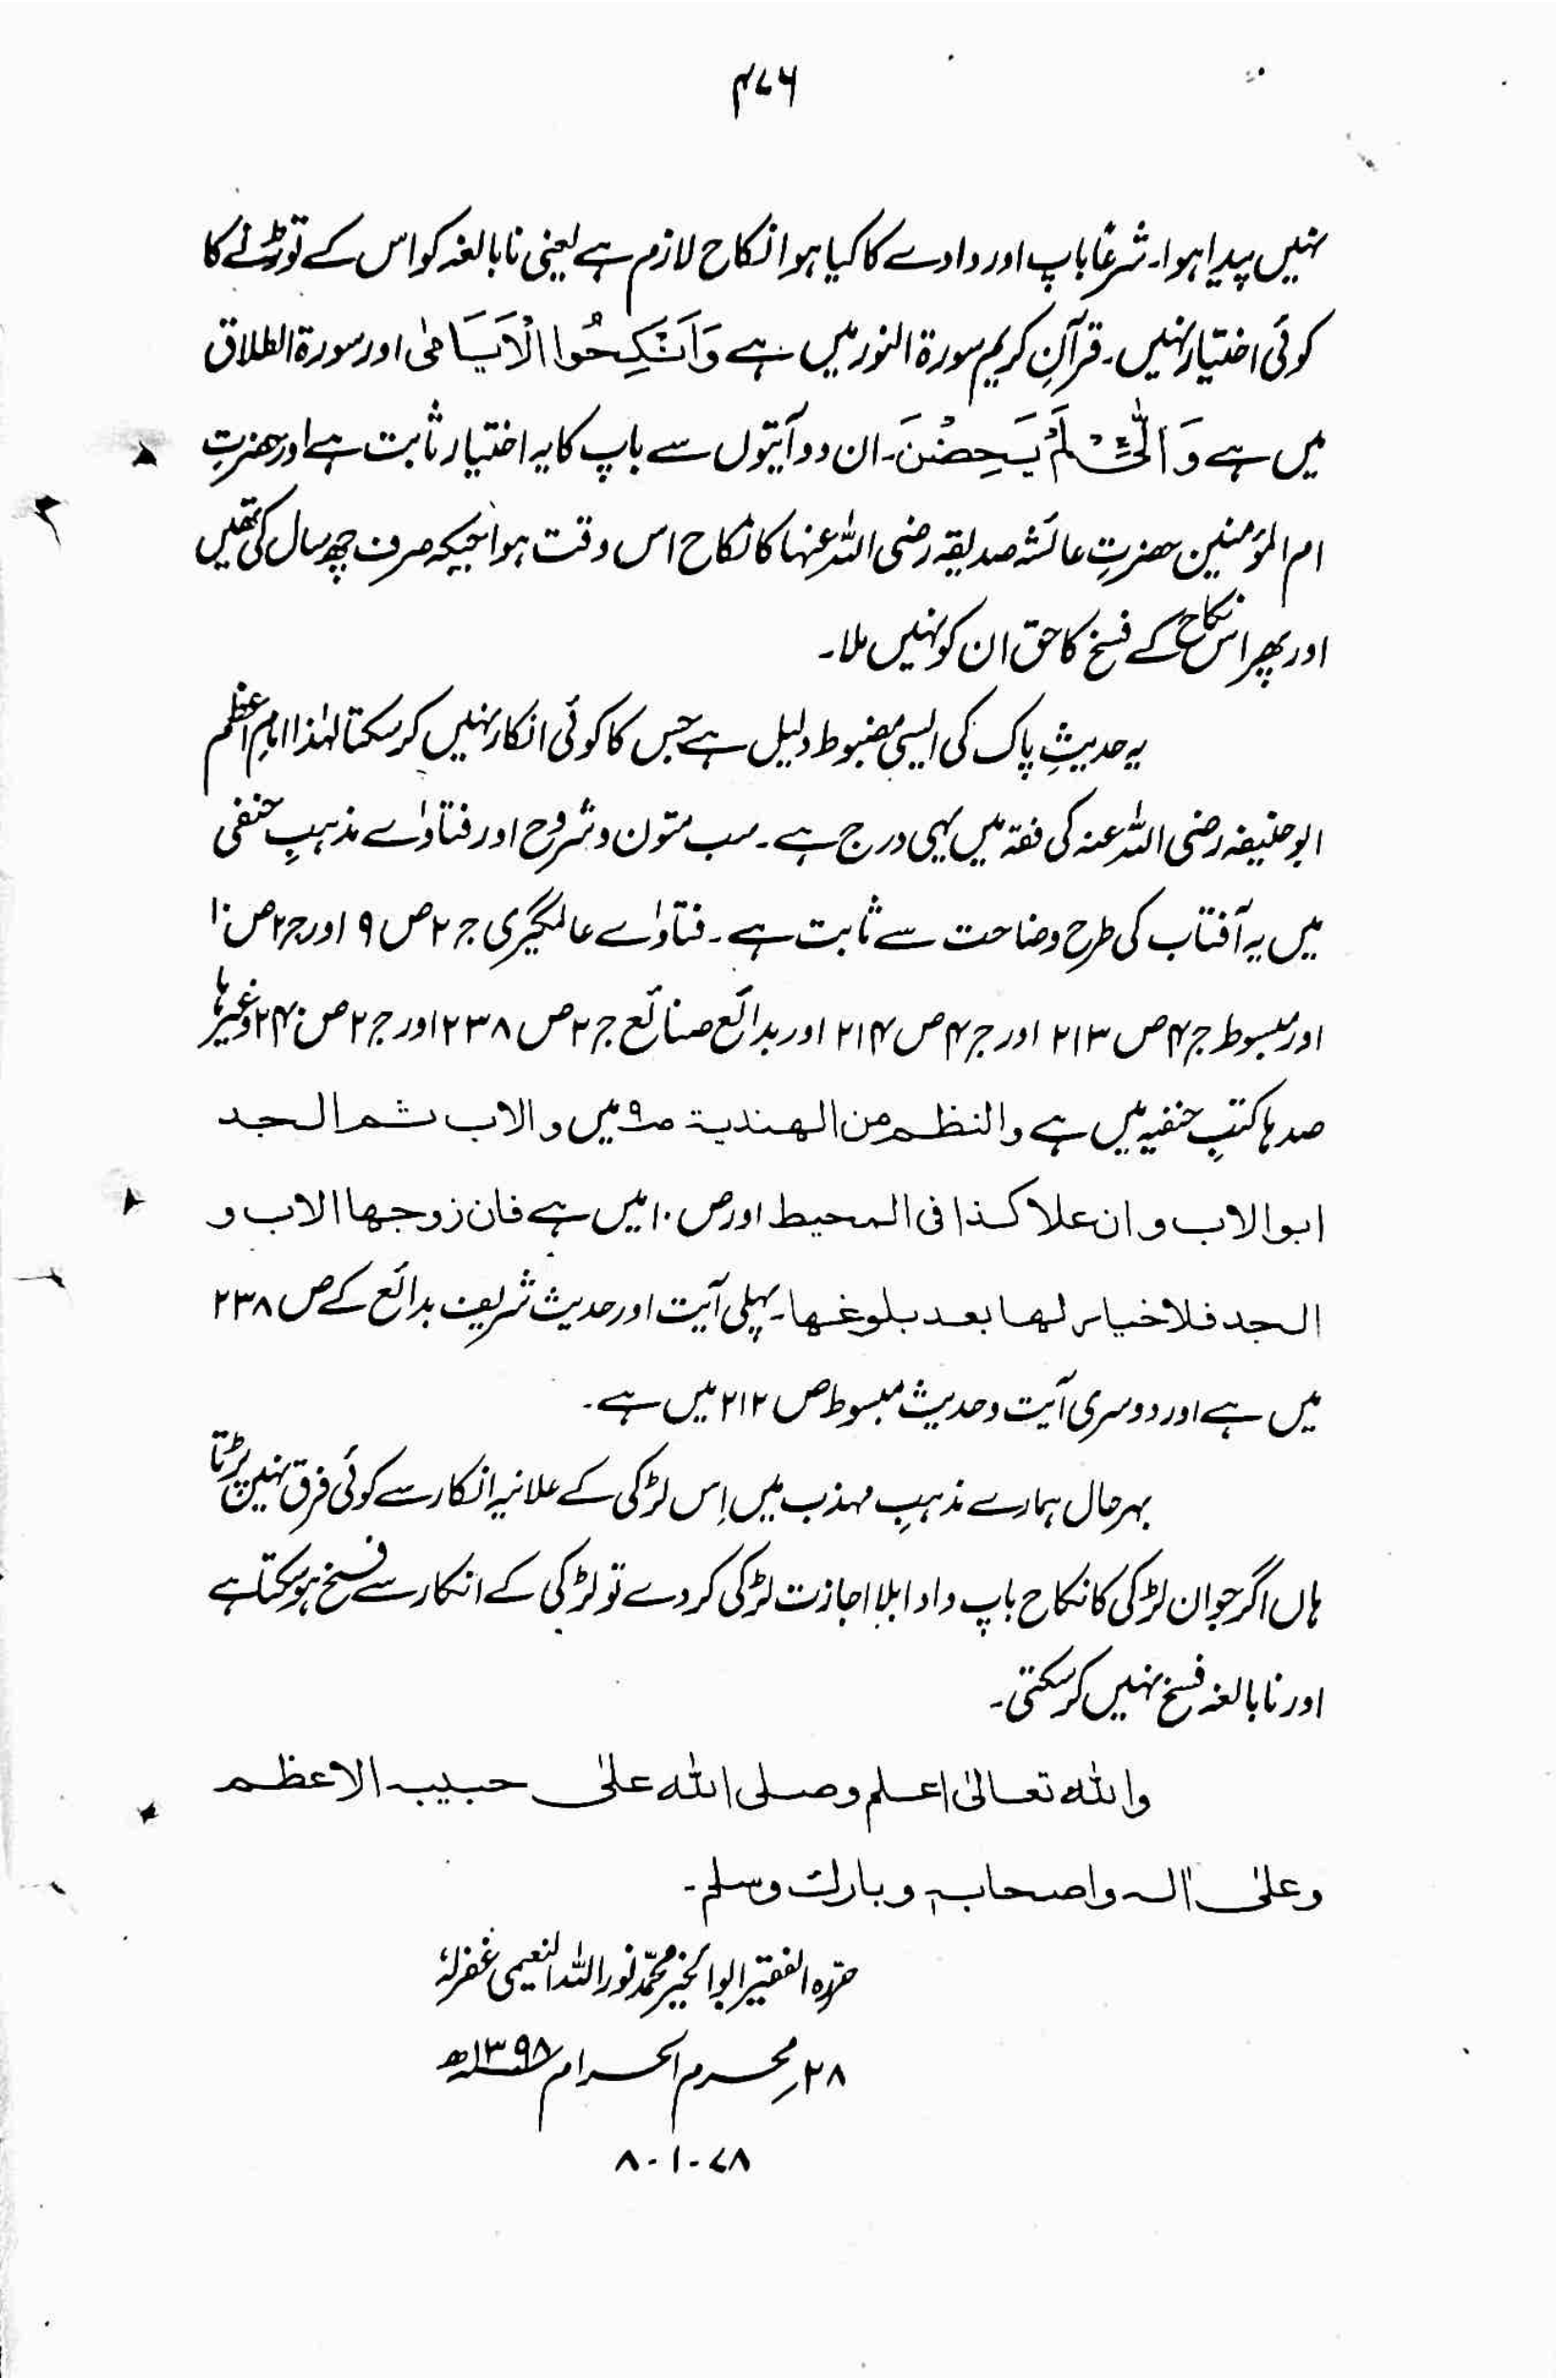 ۴۷۶
نہیں پیدا ہوا۔ شرعًا باپ اور دادے کا کیا ہوا نکاح لازم ہے یعنی نابالغہ کو اس کے توڑنے کا
کوئی اختیار نہیں۔ قرآنِ کریم سورۃ النور میں ہے وَاَنْكِحُوا الْاَيَامٰى اور سورۃ الطلاق
میں ہے وَالّٰئِیْ لَمْ يَحِضْنَ۔ ان دو آیتوں سے باپ کا یہ اختیار ثابت ہے اور حضرتِ
ام المؤمنین حضرتِ عائشہ صدیقہ رضی اللہ عنہا کا نکاح اس وقت ہوا جبکہ صرف چھ سال کی تھیں
اور پھر اس نکاح کے فسخ کا حق ان کو نہیں ملا۔
یہ حدیثِ پاک کی ایسی مضبوط دلیل ہے جس کا کوئی انکار نہیں کر سکتا لہٰذا امامِ اعظم
ابوحنیفہ رضی اللہ عنہ کی فقہ میں یہی درج ہے۔ سب متون و شروح اور فتاوٰے مذہبِ حنفی
میں یہ آفتاب کی طرح وضاحت سے ثابت ہے۔ فتاوٰے عالمگیری ج ۲ ص ۹ اور ج ۲ ص ۱۰
اور مبسوط ج ۴ ص ۲۱۳ اور ج ۴ ص ۲۱۴ اور بدائع صنائع ج ۲ ص ۲۳۸ اور ج ۲ ص ۲۴۰ وغیرہا
صدہا کتبِ حنفیہ میں ہے والنظم من الهندية ص۹ میں والاب ثم الجد
ابو الاب وان علا كذا فى المحيط اور ص ۱۰ میں ہے فان زوجها الاب و
الجد فلا خيار لها بعد بلوغها۔ پہلی آیت اور حدیث شریف بدائع کے ص ۲۳۸
میں ہے اور دوسری آیت و حدیث مبسوط ص ۲۱۲ میں ہے۔
بہرحال ہمارے مذہبِ مہذب میں اِس لڑکی کے علانیہ انکار سے کوئی فرق نہیں پڑتا
ہاں اگر جوان لڑکی کا نکاح باپ دادا بلا اجازت لڑکی کر دے تو لڑکی کے انکار سے فسخ ہو سکتا ہے
اور نابالغہ فسخ نہیں کر سکتی۔
والله تعالىٰ اعلم وصلى الله علىٰ حبيبه الاعظم
وعلىٰ اٰله واصحابه وبارك وسلم۔
حرّرہ الفقیر ابوالخیر محمّد نور اللہ النعیمی غفرلہٗ
۲۸ محرم الحرام ۱۳۹۸ھ
۸-۱-۷۸